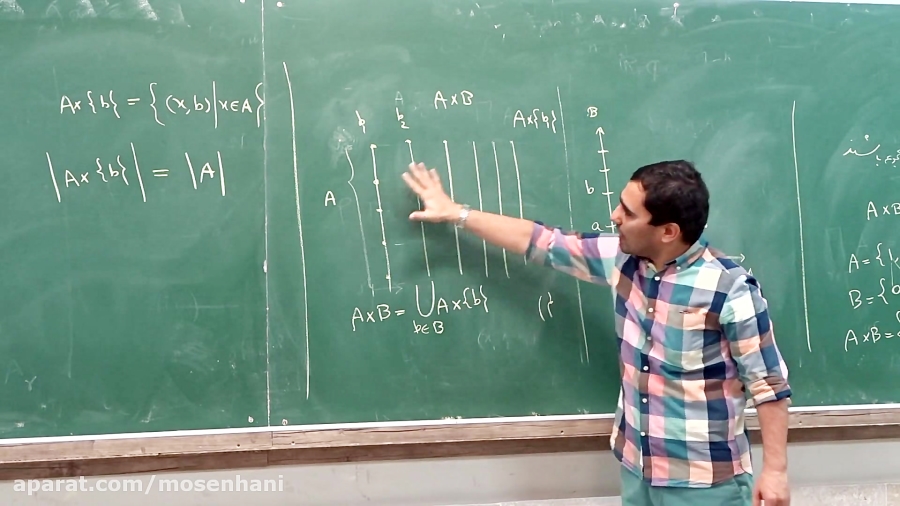 A×{b} = {(x,b)|x∈A}
|A×{b}| = |A|
b₁
b₂
A×B
A×{b₁}
A
A×B = ⋃ A×{b}
b∈B
B
b
a
A×B
A={1,
B={b
A×B=
aparat.com/mosenhani